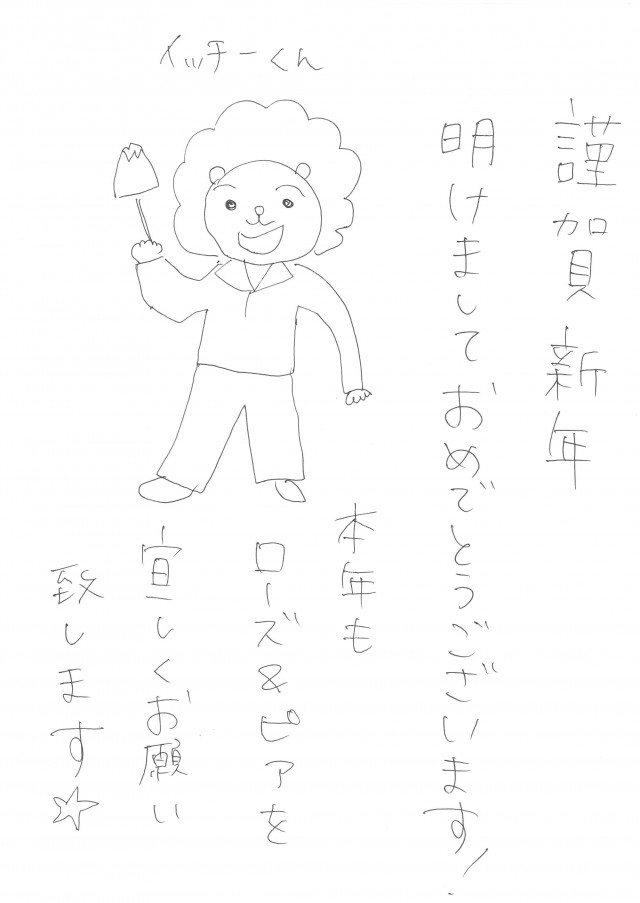 イッチーくん
謹賀新年
明けましておめでとうございます!
本年も
ローズ&ピアを
宜しくお願い
致します☆